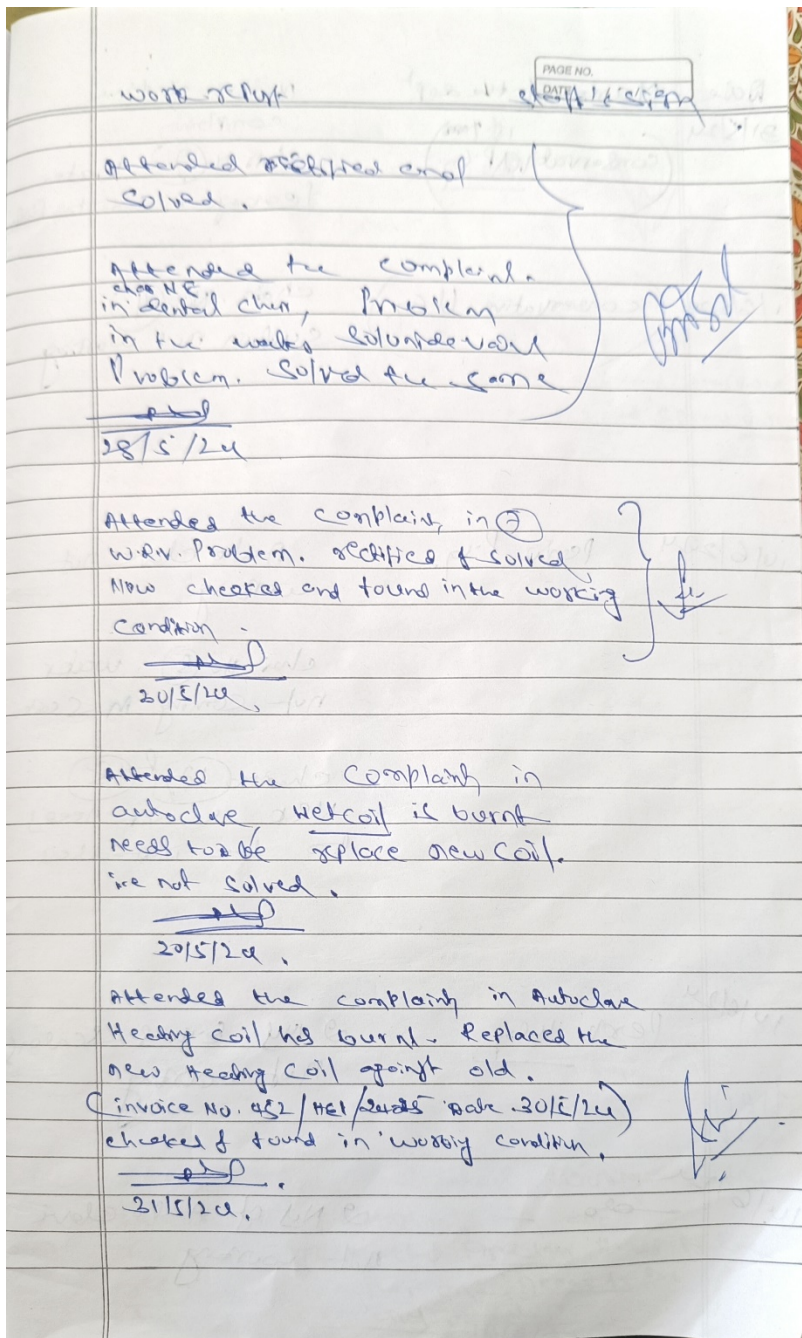 PAGE NO.
DATE
work report staff's sign
Attended rectified and
Solved.
Attended the complaint.
chair No 8
in dental chair, Problem
in the water
Problem. Solved the same
28/5/24
Attended the complaint, in 7
W.R.V. Problem. rectified & solved
Now checked and found in the working
condition.
30/5/24.
Attended the Complaint in
autoclave, wet coil is burnt
needs to be replace new coil.
not solved.
20/5/24.
Attended the complaint in Autoclave
Heating coil has burnt. Replaced the
new Heating coil against old.
(invoice No. 452/HE1/2425 Date 30/5/24)
checked & found in working condition.
31/5/24.